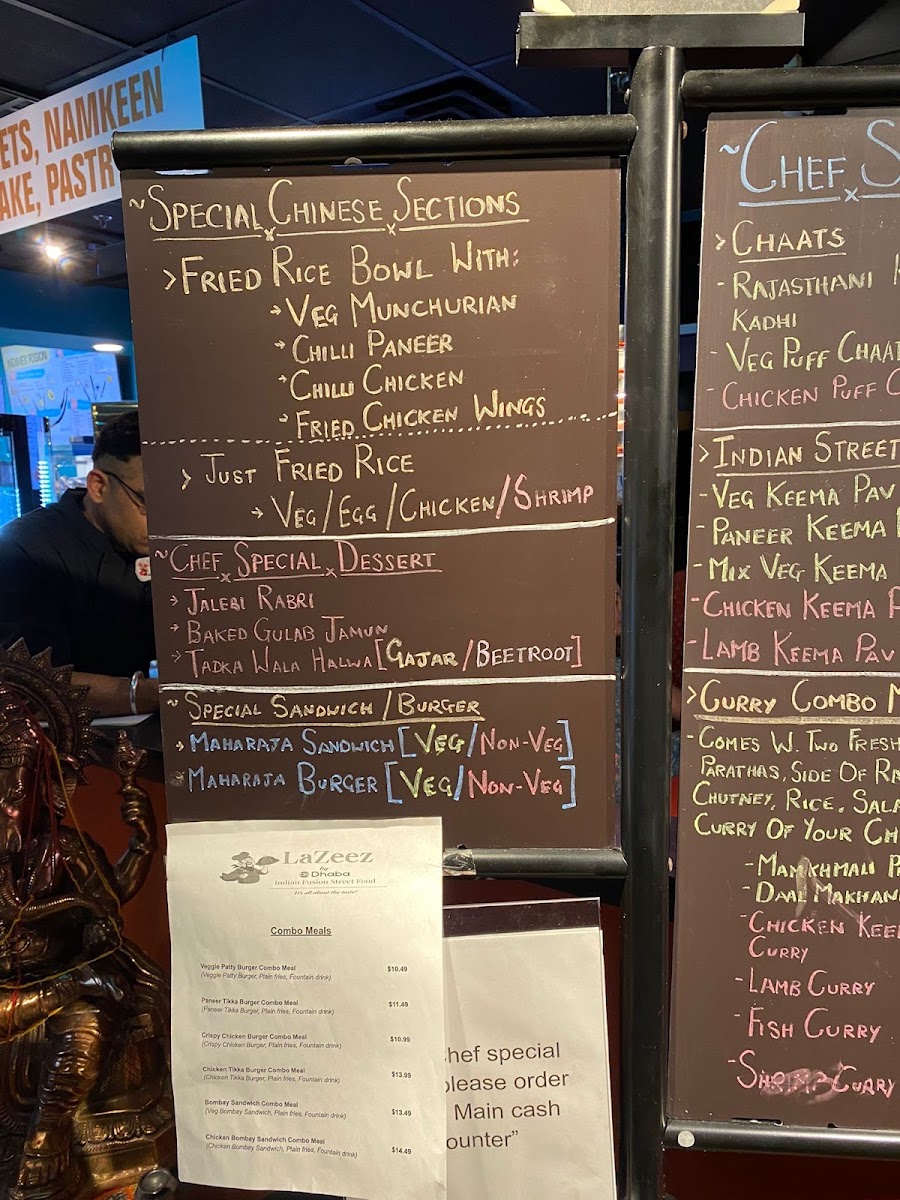 ETS, NAMKEEN
AKE, PASTR
~SPECIAL CHINESE SECTIONS
>FRIED RICE BOWL WITH:
→VEG MUNCHURIAN
→CHILLI PANEER
→CHILLI CHICKEN
→FRIED CHICKEN WINGS
> JUST FRIED RICE
→ VEG/EGG/CHICKEN/SHRIMP
~CHEF SPECIAL DESSERT
> JALEBI RABRI
> BAKED GULAB JAMUN
> TADKA WALA HALWA [GAJAR/BEETROOT]
~ SPECIAL SANDWICH/BURGER
→ MAHARAJA SANDWICH [VEG/NON-VEG]
MAHARAJA BURGER [VEG/NON-VEG]
LaZeez
by
@Dhaba
Indian Fusion Street Food
It's all about the taste!
Combo Meals
Veggie Patty Burger Combo Meal $10.49
(Veggie Patty Burger, Plain fries, Fountain drink)
Paneer Tikka Burger Combo Meal $11.49
(Paneer Tikka Burger, Plain fries, Fountain drink)
Crispy Chicken Burger Combo Meal $10.99
(Crispy Chicken Burger, Plain fries, Fountain drink)
Chicken Tikka Burger Combo Meal $13.99
(Chicken Tikka Burger, Plain fries, Fountain drink)
Bombay Sandwich Combo Meal $13.49
(Veg Bombay Sandwich, Plain fries, Fountain drink)
Chicken Bombay Sandwich Combo Meal $14.49
(Chicken Bombay Sandwich, Plain fries, Fountain drink)
hef special
please order
Main cash
ounter”
~CHEF S
> CHAATS
- RAJASTHANI K
KADHI
- VEG PUFF CHAAT
- CHICKEN PUFF C
>INDIAN STREET
- VEG KEEMA PAV
- PANEER KEEMA
- MIX VEG KEEMA
- CHICKEN KEEMA P
- LAMB KEEMA PAV
>CURRY COMBO M
- COMES W. TWO FRESH
PARATHAS, SIDE OF RA
CHUTNEY, RICE, SALA
CURRY OF YOUR CH
- MAMKHMALI P
- DAAL MAKHAN
- CHICKEN KEE
CURRY
- LAMB CURRY
- FISH CURRY
- SHRIMP CURRY